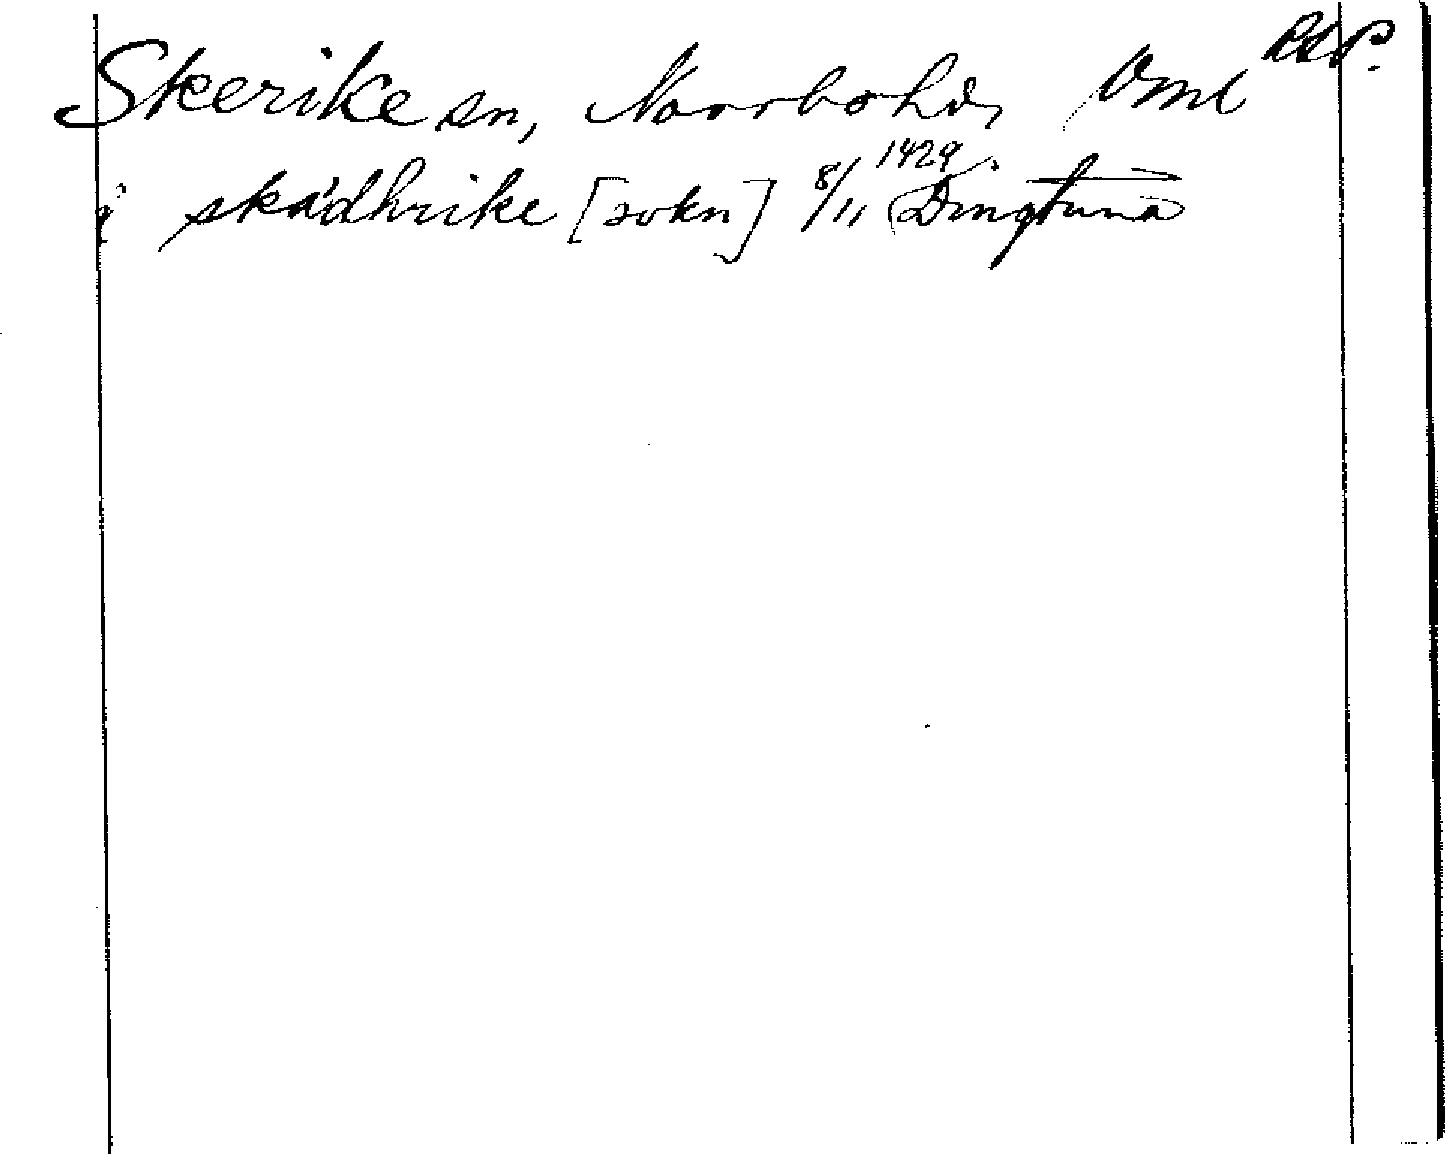 Skerike sn, Norrbo hd, Vml RAP.
i skädhrike [sokn] 8/11 1429 Dingtuna